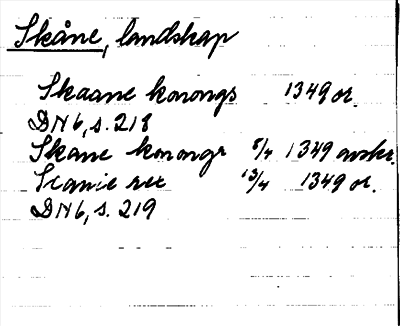 Skåne, landskap
Skaane konongs 1349 or.
DN 6, s. 218
Skane konongr 8/4 1349 avskr.
Scanie rex 13/4 1349 or.
DN 6, s. 219